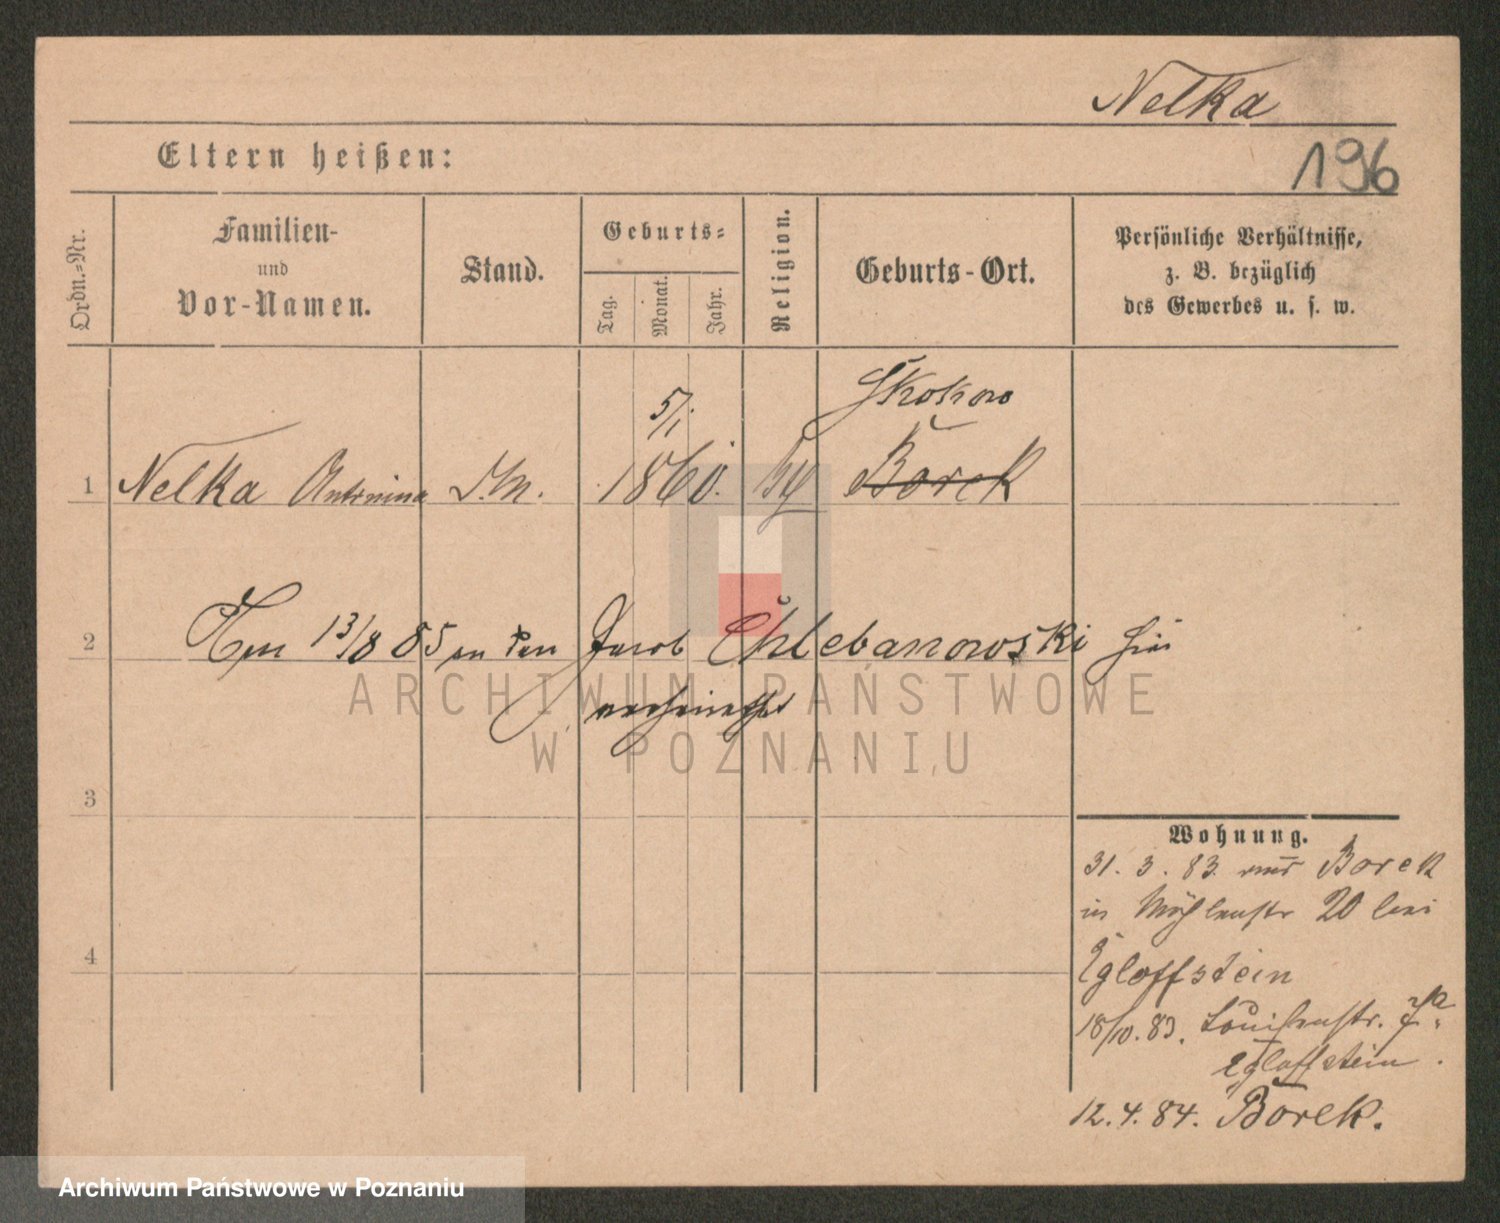 Nelka
Eltern heißen:
196
Ordn.=Nr.
Familien-
und
Vor-Namen.
Stand.
Geburts=
Tag.
Monat.
Jahr.
Religion.
Geburts-Ort.
Persönliche Verhältnisse,
z. B. bezüglich
des Gewerbes u. s. w.
Skokow
5/1
1 Nelka Antonina 1860. Borek
2 Am 13/8 85 an den Jacob Chlebanowski hier
verheirathet
ARCHIWUM PAŃSTWOWE
W POZNANIU
3
Wohnung.
31. 3. 83. aus Borek
in Mühlenstr 20 bei
4
Egloffstein
18/10. 83. Louisenstr.
Egloffstein.
12. 4. 84. Borek.
Archiwum Państwowe w Poznaniu